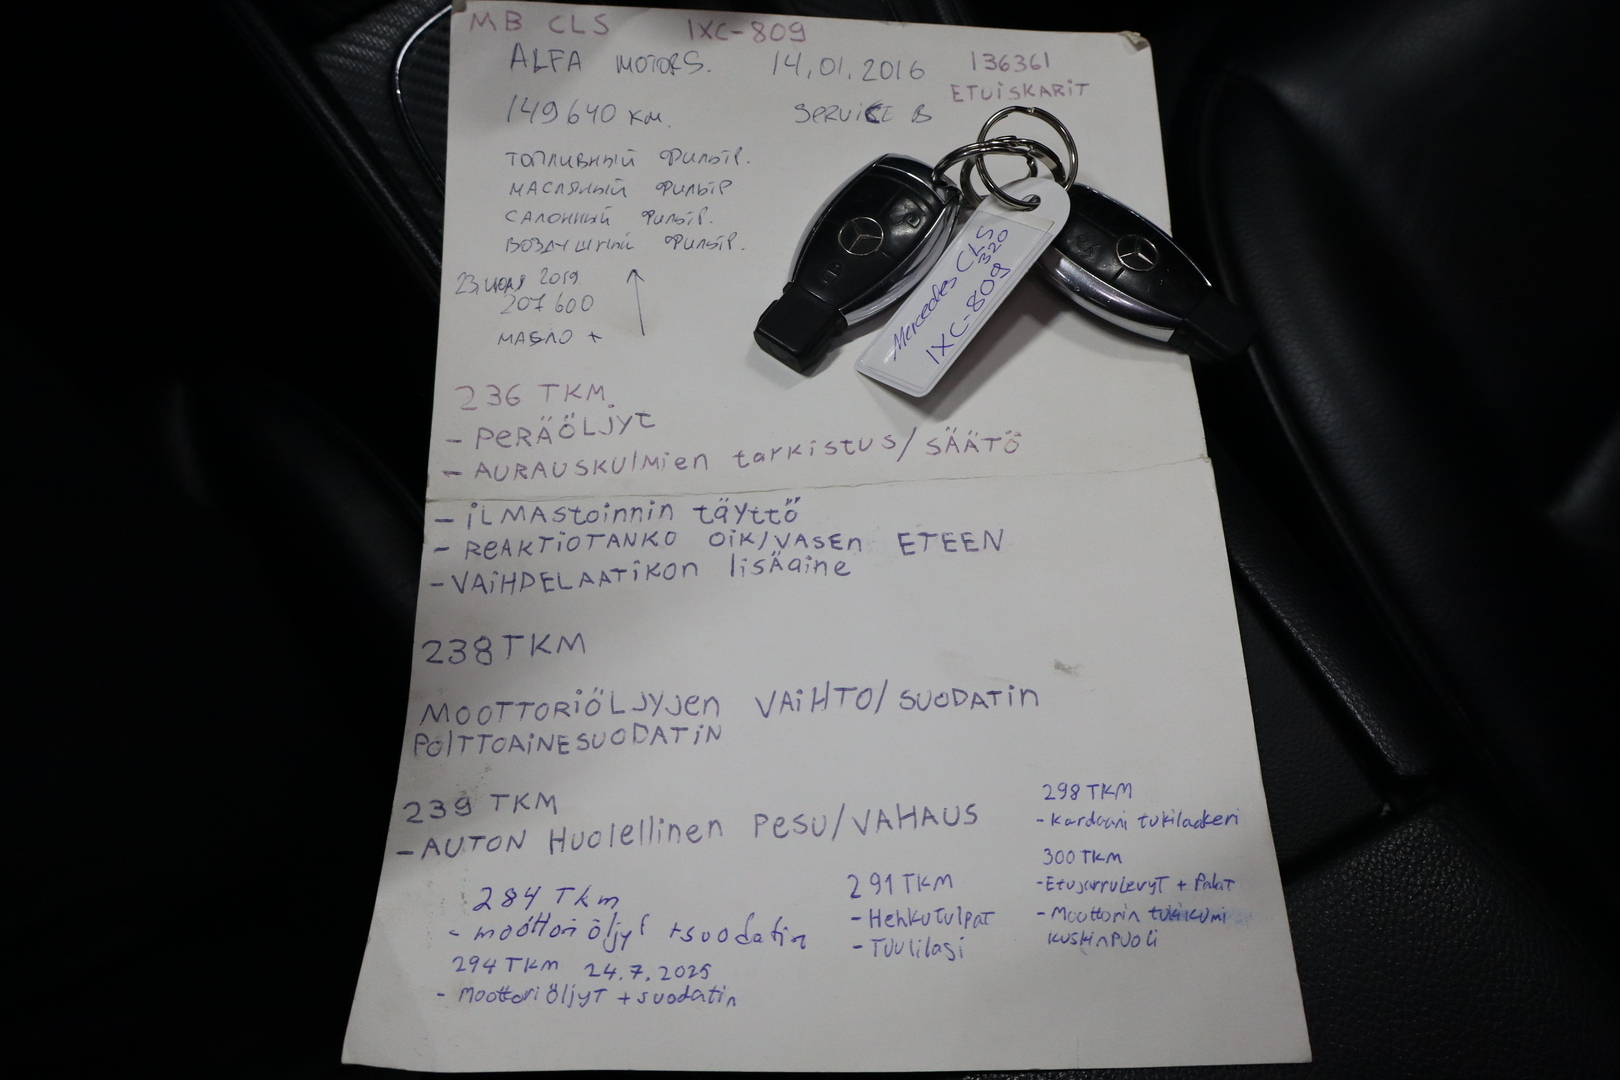 MB CLS IXC-809
ALFA MOTORS. 14.01.2016 136361
ETUISKARIT
149640 км. SERVICE B
ТОПЛИВНЫЙ ФИЛЬТР.
МАСЛЯНЫЙ ФИЛЬТР
САЛОННЫЙ ФИЛЬТР.
ВОЗДУШНЫЙ ФИЛЬТР.
23. 2019
207600
МАСЛО +
Mercedes CLS
320
IXC-809
236 TKM
- PERÄÖLJYT
- AURAUSKULMIEN tarkistus/SÄÄTÖ
- iLMAStoinnin täyttö
- REAKTIOTANKO OIK/VASEN ETEEN
- VAIHDELAATIKON lisÄaine
238 TKM
MOOTTORIÖLJYJEN VAIHTO/SUODATIN
POLTTOAINESUODATIN
239 TKM
- AUTON Huolellinen PESU/VAHAUS
284 Tkm
- moottori öljyt +suodatin
294 TKM 24.7.2025
- Moottoriöljyt + suodatin
291 TKM
- Hehkutulpat
- Tuulilasi
298 TKM
- Kardaani tukilaakeri
300 TKM
- Etujarrulevyt + Palat
- Moottorin tukikumi
kuskinpuoli